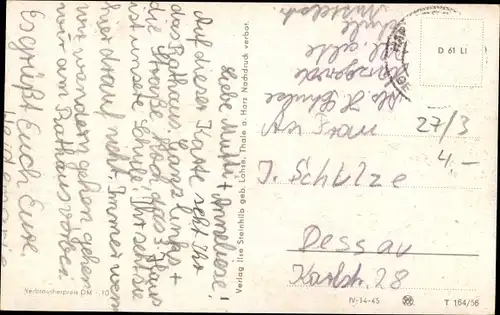 Liebe Mutti + Anneliese!
Auf dieser Karte seht Ihr
das Rathaus. Ganz links +
die Straße hoch, das 3. Haus
ist unsere Schule. Ihr seht sie
hier drauf nicht. Immer wenn
wir wandern gehen, gehen
wir am Rathaus vorbei.
Es grüßt Euch Eure
Verlag Ilse Steinhilb geb. Lohse, Thale a. Harz Nachdruck verbot.
Verbraucherpreis DM -.10
D 61 LI
An Frau
27/3
4.-
I. Schulze
Dessau
28
IV-14-45
T 164/56